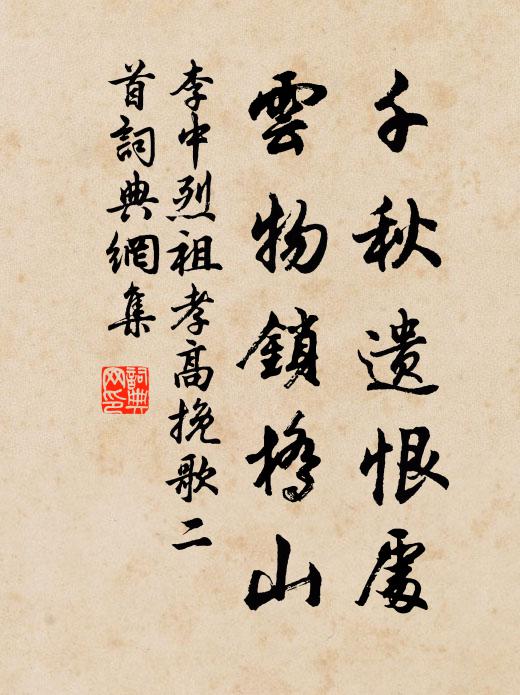 千秋遗恨處
雲物鎖橋山
李中烈祖孝高挽歌二
首詞典網集
詞典網印